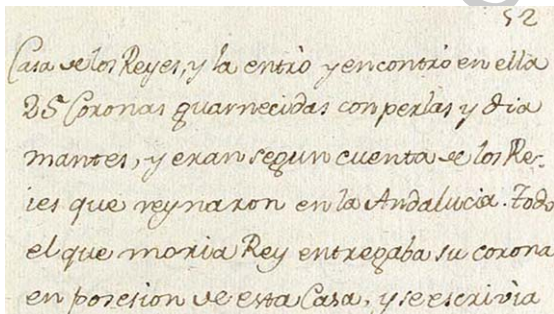 52
Casa de los Reyes, y la entrò y encontrò en ella
25 Coronas guarnecidas con perlas y dia
mantes, y eran segun cuenta de los Re-
ies que reynaron en la Andalucia. Todo
el que moria Rey entregaba su corona
en posesion de esta Casa, y se escrivia